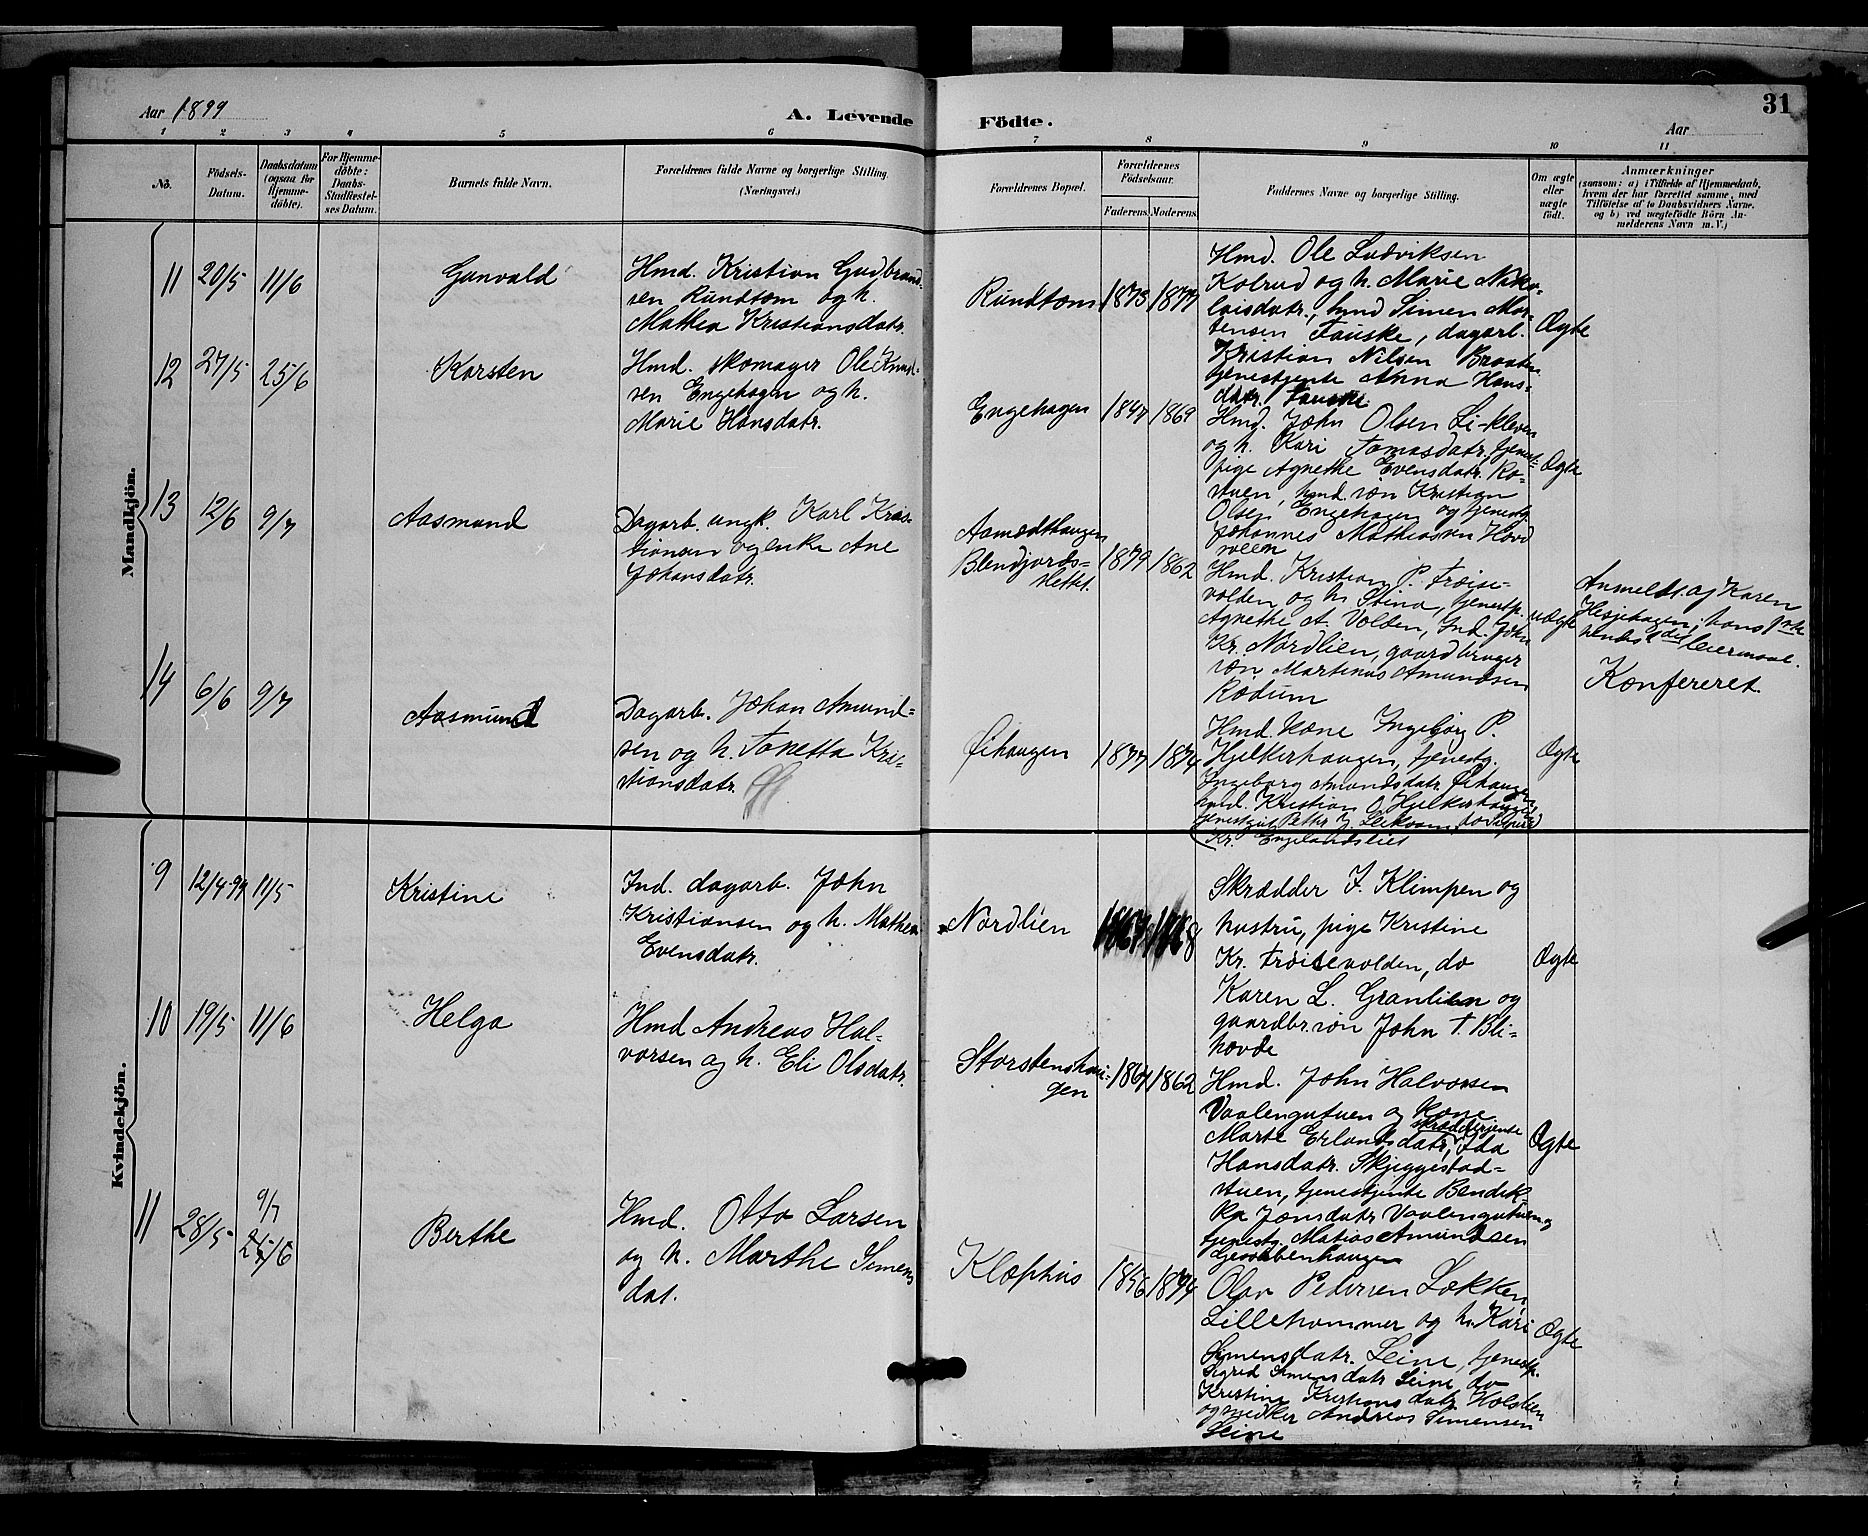 Aar 1899
A. Levende
Födte.
31
Aar
1 2 3 4 5 6 7 8 9 10 11
No.
Födsels-
Datum.
Daabsdatum
(ogsaa for
Hjemme-
döbte).
For Hjemme-
döbte:
Daabs-
Stadfæstel-
ses Datum.
Barnets fulde Navn.
Forældrenes fulde Navne og borgerlige Stilling.
(Næringsvei.)
Forældrenes Bopæl.
Forældrenes
Födselsaar.
Faderens. Moderens.
Faddernes Navne og borgerlige Stilling.
Om ægte
eller
uægte
födt.
Anmærkninger
(saasom: a) i Tilfælde af Hjemmedaab,
hvem der har forrettet samme, med
Tilföielse af to Daabsvidners Navne,
og b) ved uægtefödte Börn An-
melderens Navn m. V.)
Mandkjön.
11 20/5 11/6
Gunvald
Hmd. Kristian Gudbrand-
sen Rundtom og h.
Mathea Kristiansdatr.
Rundtom 1873 1877
Hmd. Ole Ludviksen
Kolrud og h. Marie Niko-
laisdatr., hmd Simen Mor-
tensen Fauske, dagarb.
Kristian Nilsen Braaten
tjenestjente Anna Hans-
datr. Fauske.
Ægte
12 27/5 25/6
Karsten
Hmd. skomager Ole Knud-
sen Engehagen og h.
Marie Hansdatr.
Engehagen 1847 1869
Hmd. John Olsen Li-kleven
og h. Kari Tomasdatr, tjenest-
pige Agnethe Evensdatr. Ro-
stuen, hmd. søn Kristian
Olsen Engehagen og tjenestg
Johannes Mathiassen Hovd
sveen
Ægte
13 12/6 9/7
Aasmund
Dagarb. ungk. Karl Kris-
tiansen og enke Ane
Johansdatr.
Aamodthaugen
Blendjords-
slettet. 1879 1862
Hmd. Kristian P. Frøise-
volden og h. Stina, tjenestp.
Agnethe A. Volden, Ind. John
Kr. Nordlien, gaardbruger
søn Martinus Amundsen
Rødum
uægte
Anmeldt af Karen
Hesjehagen; hans 1ste
hendes 1 det leiermaal.
Konfereret.
14 6/6 9/7
Aasmund
Dagarb. Johan Amund-
sen og h. Tonetta Kris-
tiansdatr.
Øihaugen 1877 1874
Hmd. Kone Ingebjørg P.
Hjelkerhaugen, tjenestg.
Ingeborg Amundsdatr. Øihaugen
hmd. Kristian O Hjelkerhaugen
tjenestgut Petter J. Leikvam, do
Kr. Engelandslien
Ægte
Kvindekjön.
9 12/4 99 11/5
Kristine
Ind. dagarb. John
Kristiansen og h. Mathea
Evensdatr.
Nordlien 1868
Skrædder I. Klimpen og
hustru, pige Kristine
Kr. Frøisevolden, do
Karen L. Granlien og
gaardbr. søn John T. Bli-
hovde
Ægte
10 19/5 11/6
Helga
Hmd Andreas Hal-
vorsen og h. Eli Olsdatr.
Storstenshau-
gen 1867 1862
Hmd. John Halvorsen
Vaalengutuen og Kone
Marte Erlandsdatr, skrædderjente Ida
Hansdatr. Skjeggestad-
stuen, tjenestjente Bendik-
ka Jonsdatr Vaalengutuen og
tjenestg. Matias Amundsen
Ægte
11 28/5 9/7
25/6
Berthe
Hmd. Otto Larsen
og h. Marthe Simens
dat.
Klophus 1856 1874
Olav Pedersen Løkken
Lillehammer og h. Kari
Simensdatr. Seine, tjenestp.
Sigrid Simensdatr Seine do
Kristine Kristiansdatr Holslien
og snedker Andreas Simensen
Seine
Ægte